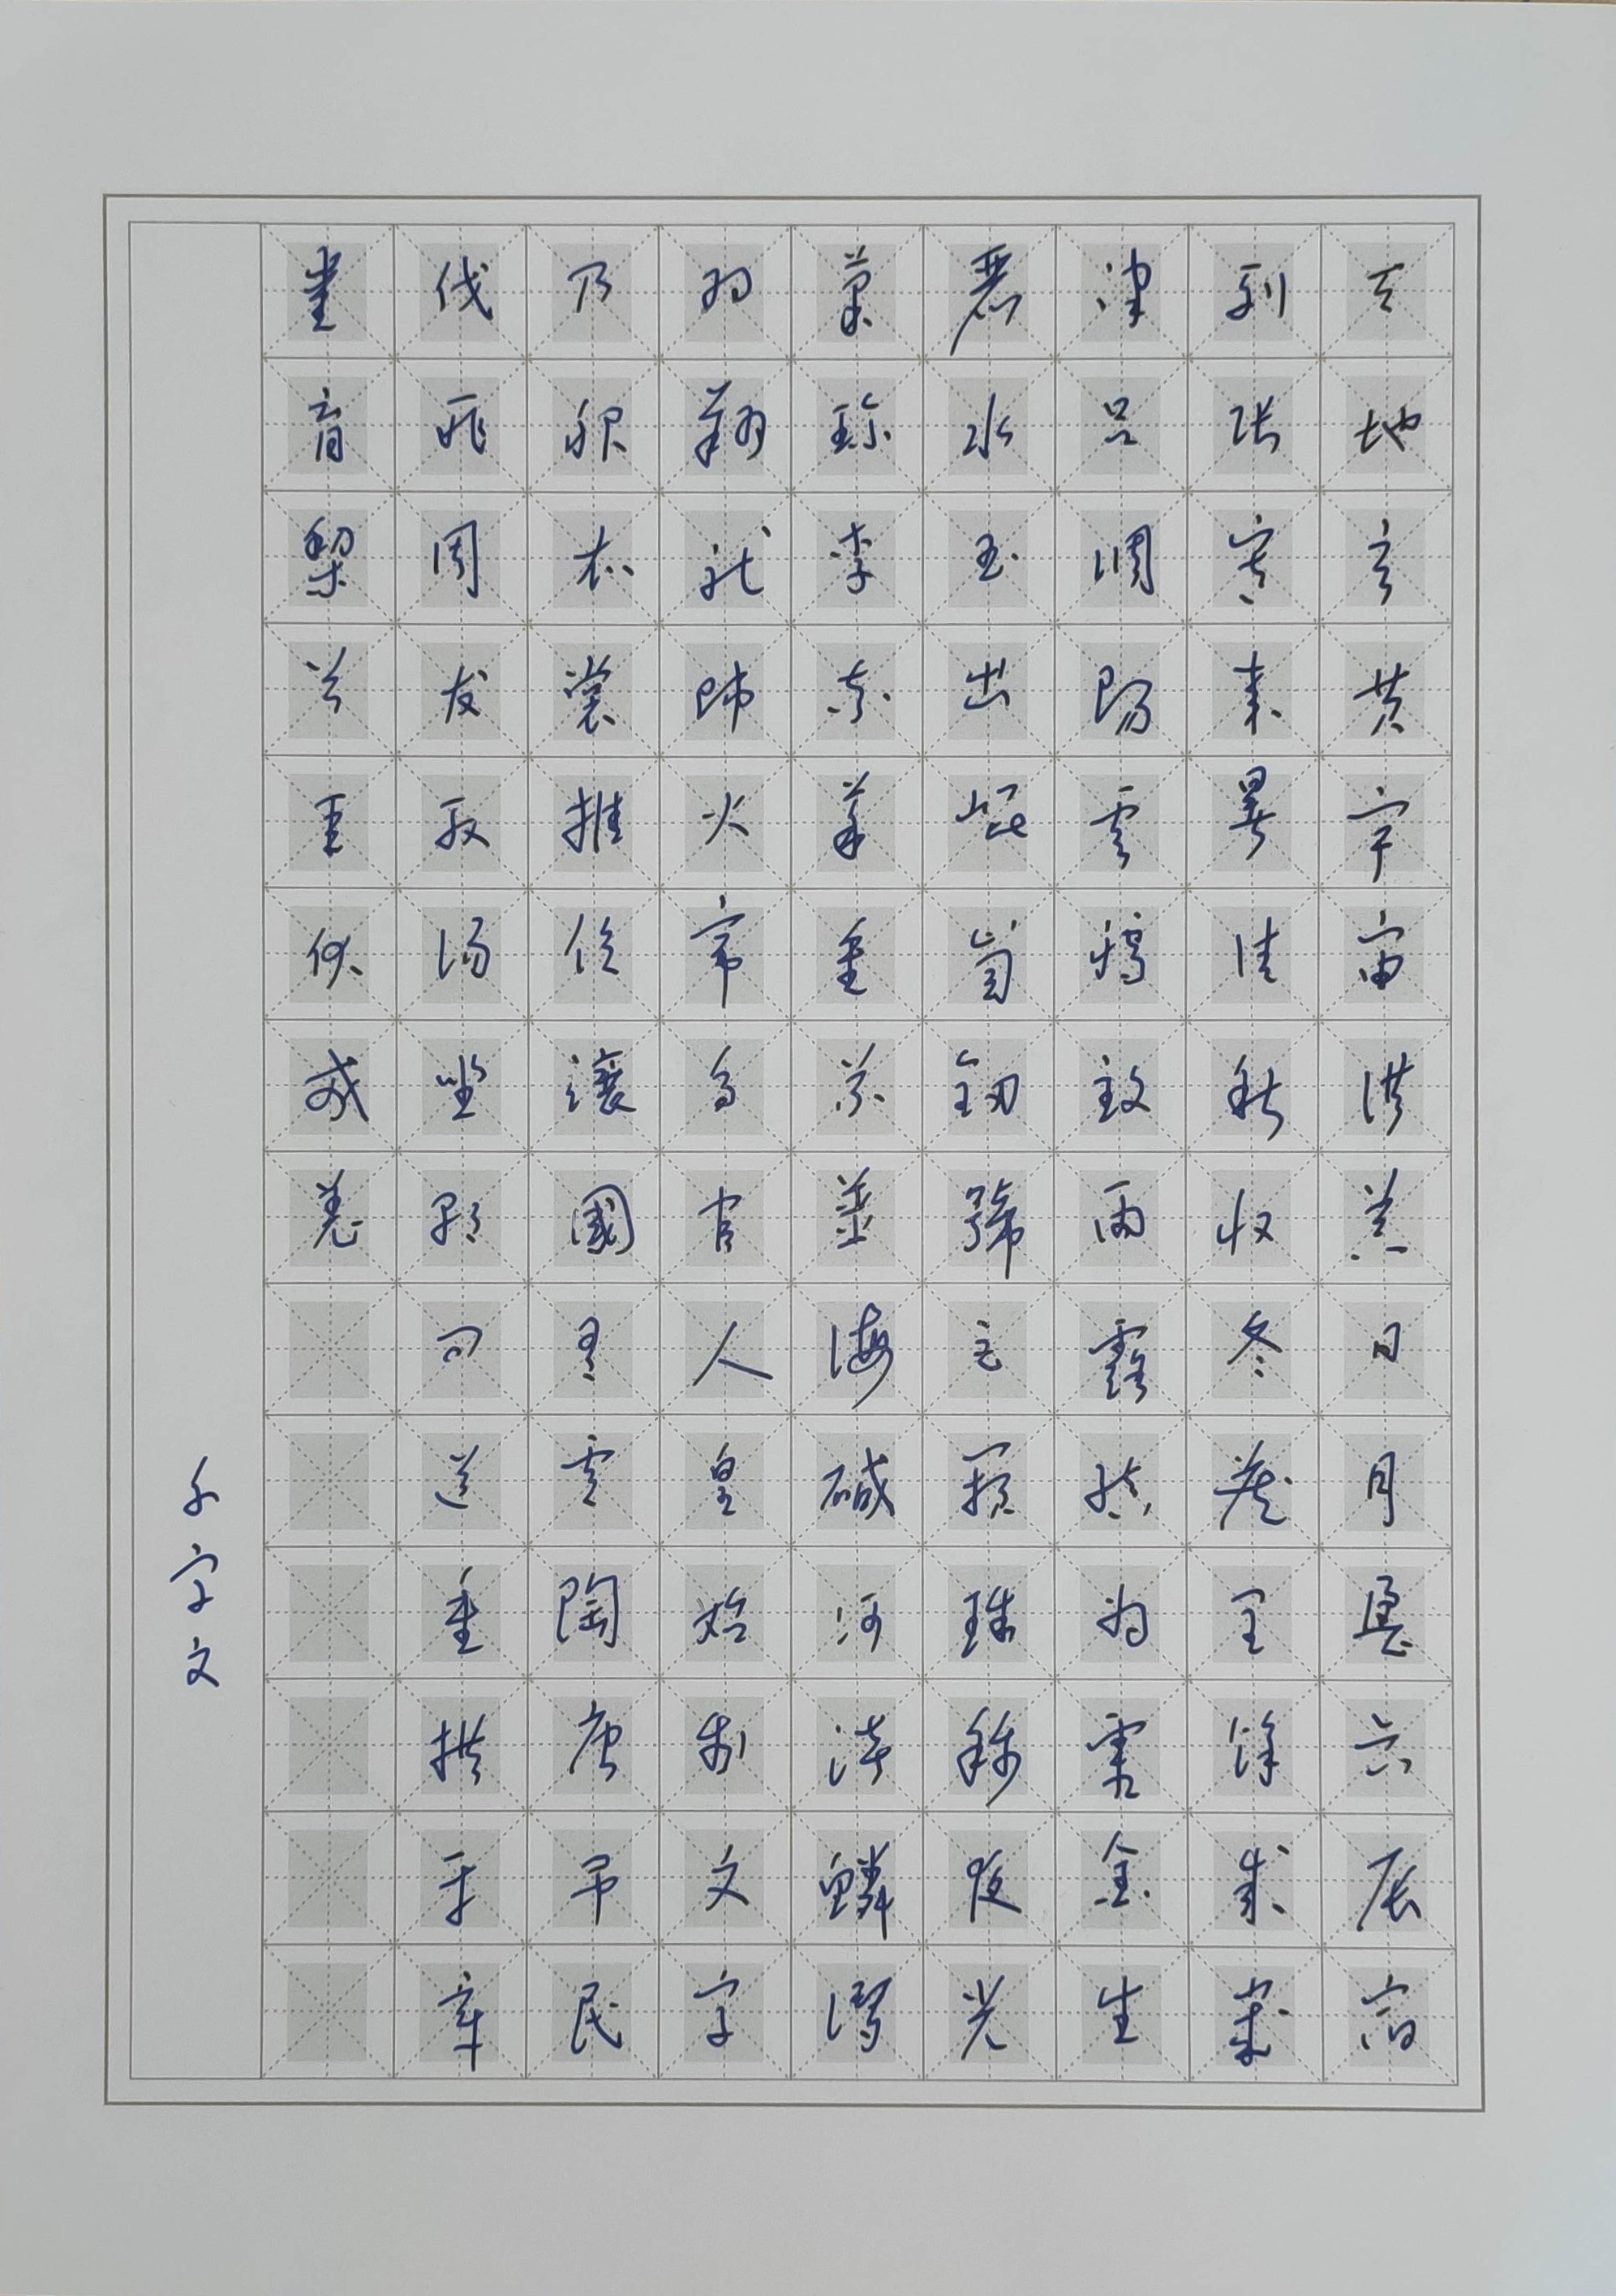 天地玄黄宇宙洪荒日月盈昃辰宿
列张寒来暑往秋收冬藏闰馀成歲
律吕調陽雲騰致雨露结为霜金生
麗水玉出崐崗劍號巨闕珠称夜光
菓珍李柰菜重芥薑海鹹河淡鱗潛
羽翔龍師火帝鸟官人皇始制文字
乃服衣裳推位讓國有虞陶唐吊民
伐罪周发殷湯坐朝问道垂拱平章
愛育黎首臣伏戎羌
千字文